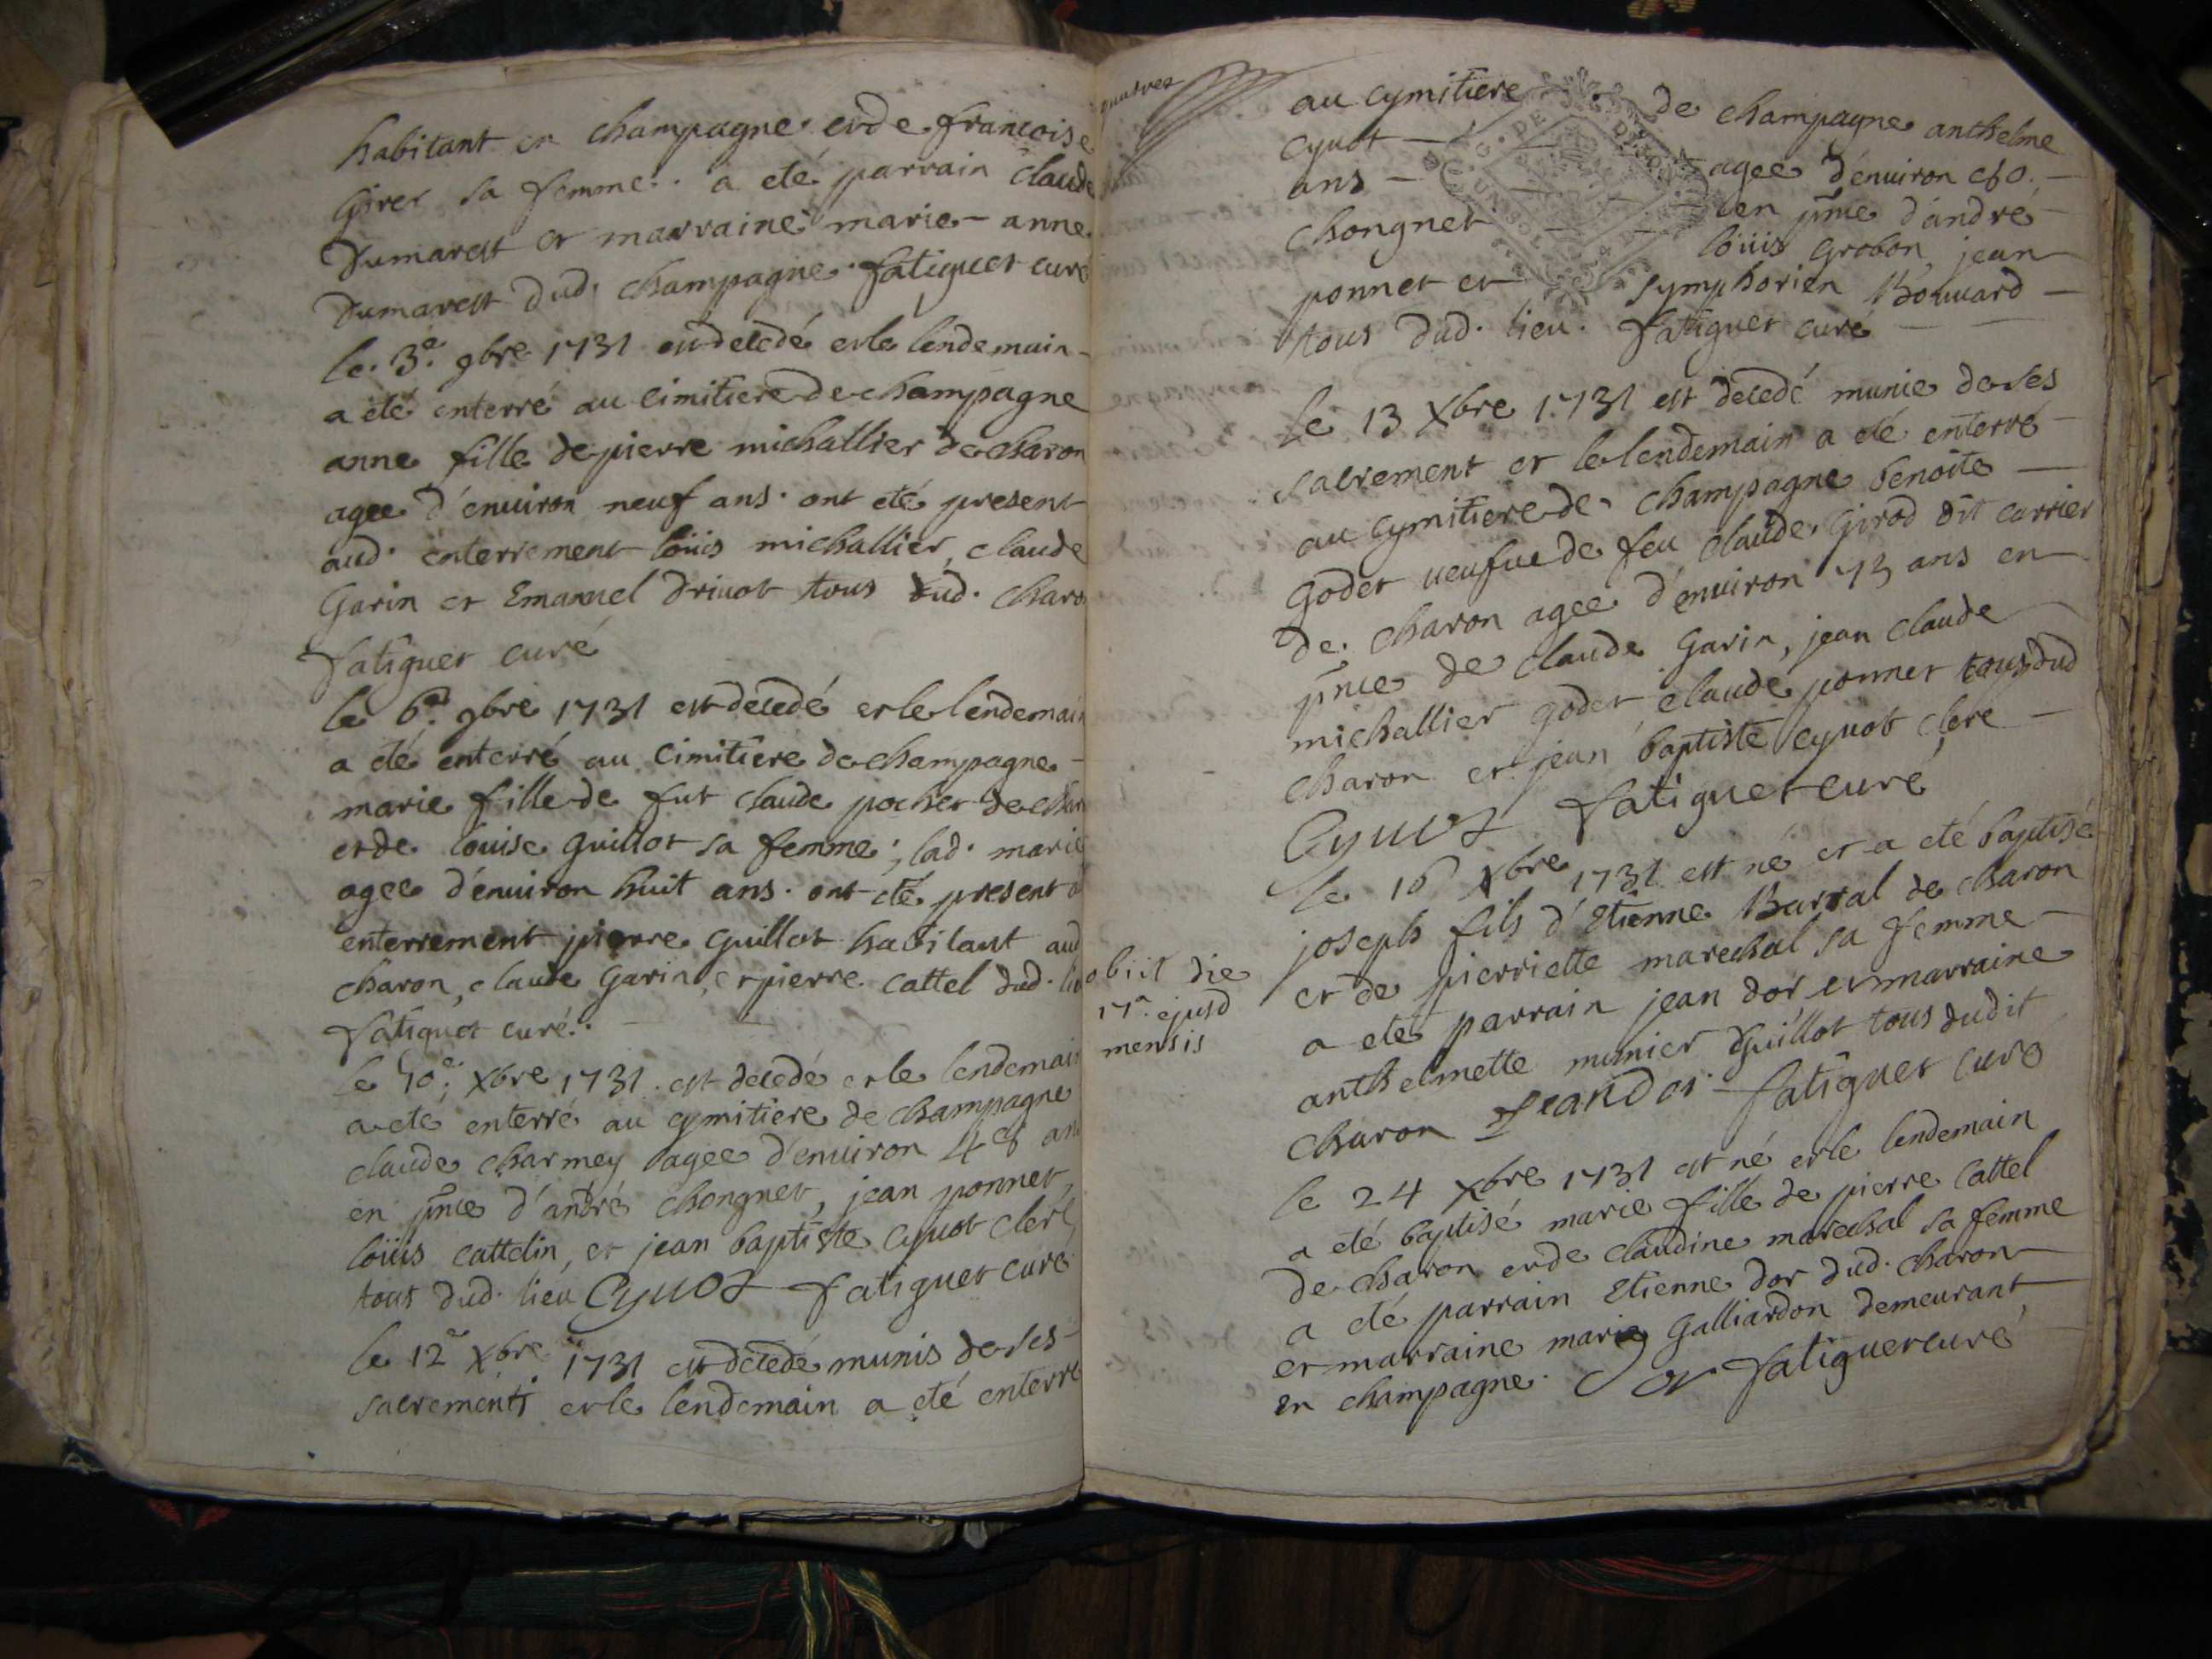 habitant en champagne et de francoise
Girer sa femme. a eté parrain claude
Dumarest et marraine marie-anne
Dumarest dud. champagne. fatiguet curé
le. 3.e 9bre 1731 est decedé et le lendemain
a eté enterré au cimitiere de champagne
anne fille de pierre michallier de charon
agee d'enuiron neuf ans. ont eté present
aud. enterrement loüis michallier, claude
Garin et Emanuel Driuot tous dud. charo
fatiguet curé
le 6.e 9bre 1731 est decedé et le lendemain
a eté enterré au cimitiere de champagne
marie fille de fut claude pocher de
et de louise guillot sa femme; lad. marie
agee d'enuiron huit ans. ont eté present a
enterrement pierre guillot habitant aud
charon, claude Garin, et pierre cattel dud.
fatiguet curé.
le 10.e Xbre 1731. est decedé et le lendemain
a ete enterré au cymitiere de champagne
claude charmey agee d'enuiron 48 ans
en pnce d'andré chongnet, jean ponnet,
loüis cattelin, et jean baptiste cyuot clerc
tous dud. lieu Cyuot fatiguet curé
le 12e Xbre 1731 est decedé munis de ses
sacrements et le lendemain a eté enterré
au cymitiere de champagne anthelme
cyuot agee d'enuiron 80.
ans en pnce d'andré
chongnet loüis Grobon jean
ponnet et symphorien Bouuard
tous dud. lieu. fatiguet curé
le 13 Xbre 1731 est decedé munie de ses
sacrement et le lendemain a eté enterré
au cymitiere de champagne benoite
Godet ueufue de feu claude Girod dit carrier
de. charon agee d'enuiron 73 ans en
pnce de claude Garin, jean claude
michallier godet claude ponnet tous dud
charon et jean baptiste cyuot clerc
Cyuot fatiguet curé
le 16 Xbre 1731 est né et a eté baptisé
joseph fils d'Etienne Barral de charon
et de pierriette marechal sa femme
obiit die
17.a ejusd
mensis
a eté parrain jean dor et marraine
anthelmette munier Guillot tous dudit
charon Jean Dor fatiguet curé
le 24 Xbre 1731 est né et le lendemain
a eté baptisé marie fille de pierre cattel
de charon et de claudine marechal sa femme
a eté parrain Etienne dor dud. charon
et marraine marie Galliardon demeurant
en champagne. fatiguet curé